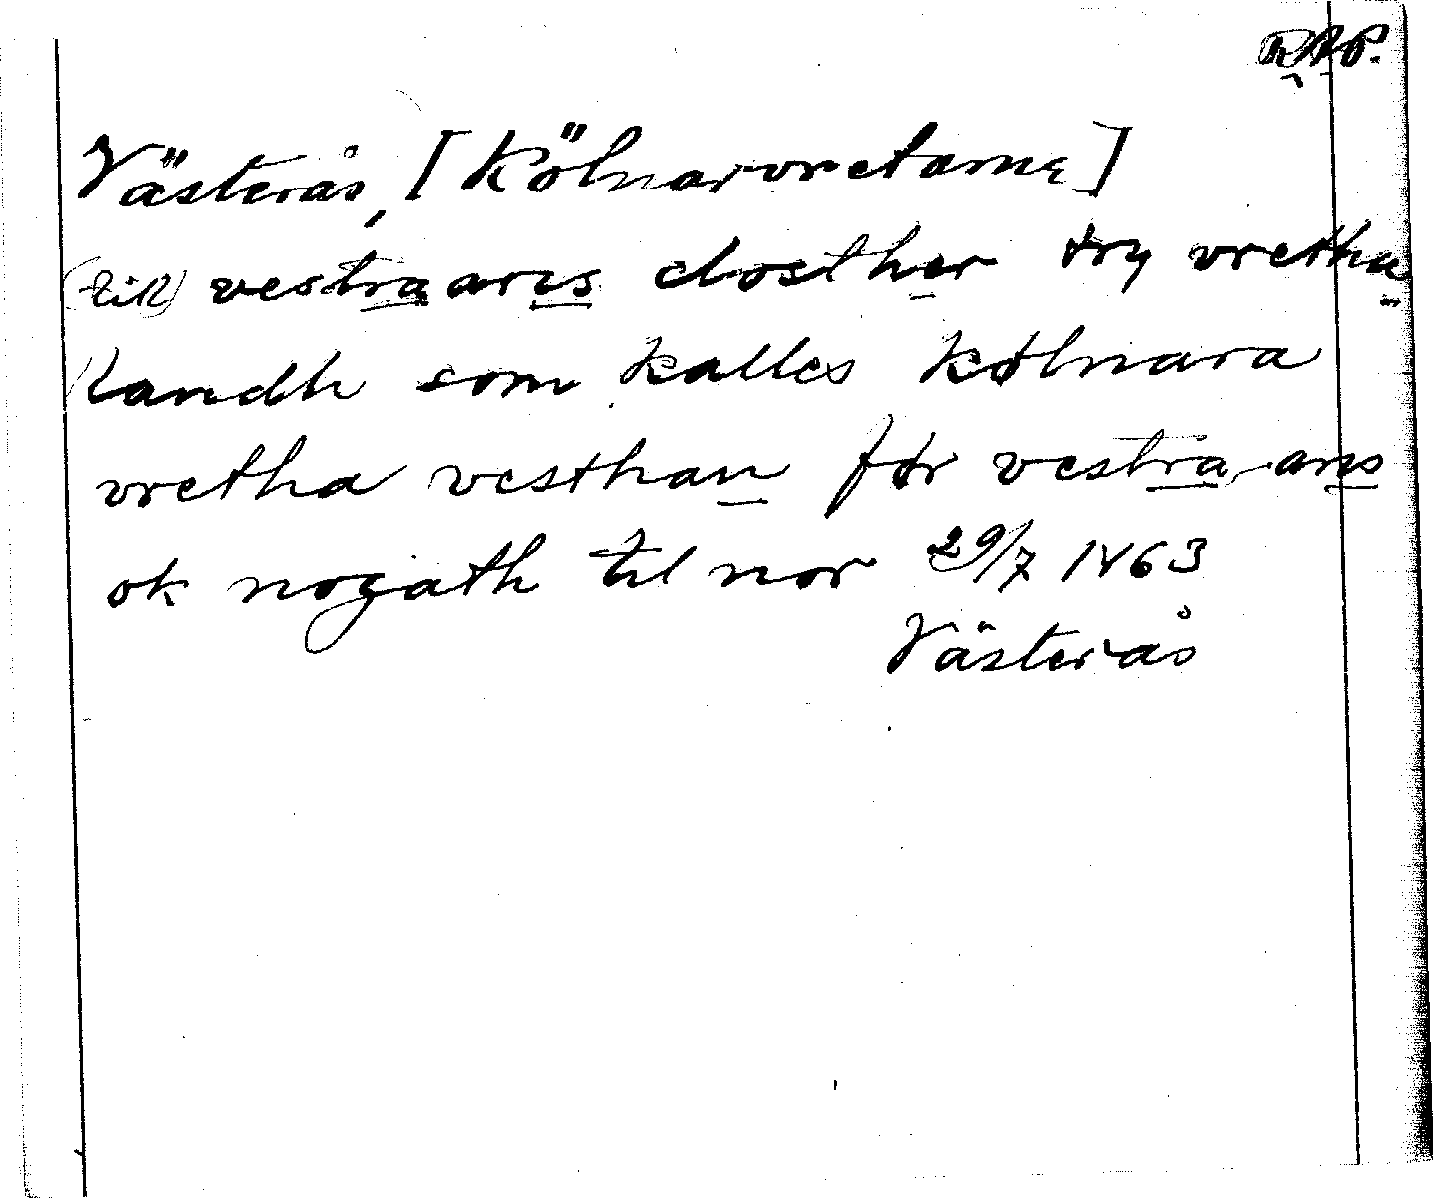 RAP.
Västerås, [Kölnarvretarne]
(till) vestraarus closther try vretha
landh som kalles kølnara
vretha vesthan før vestra arus
ok nogath til nor 29/7 1463
Västerås